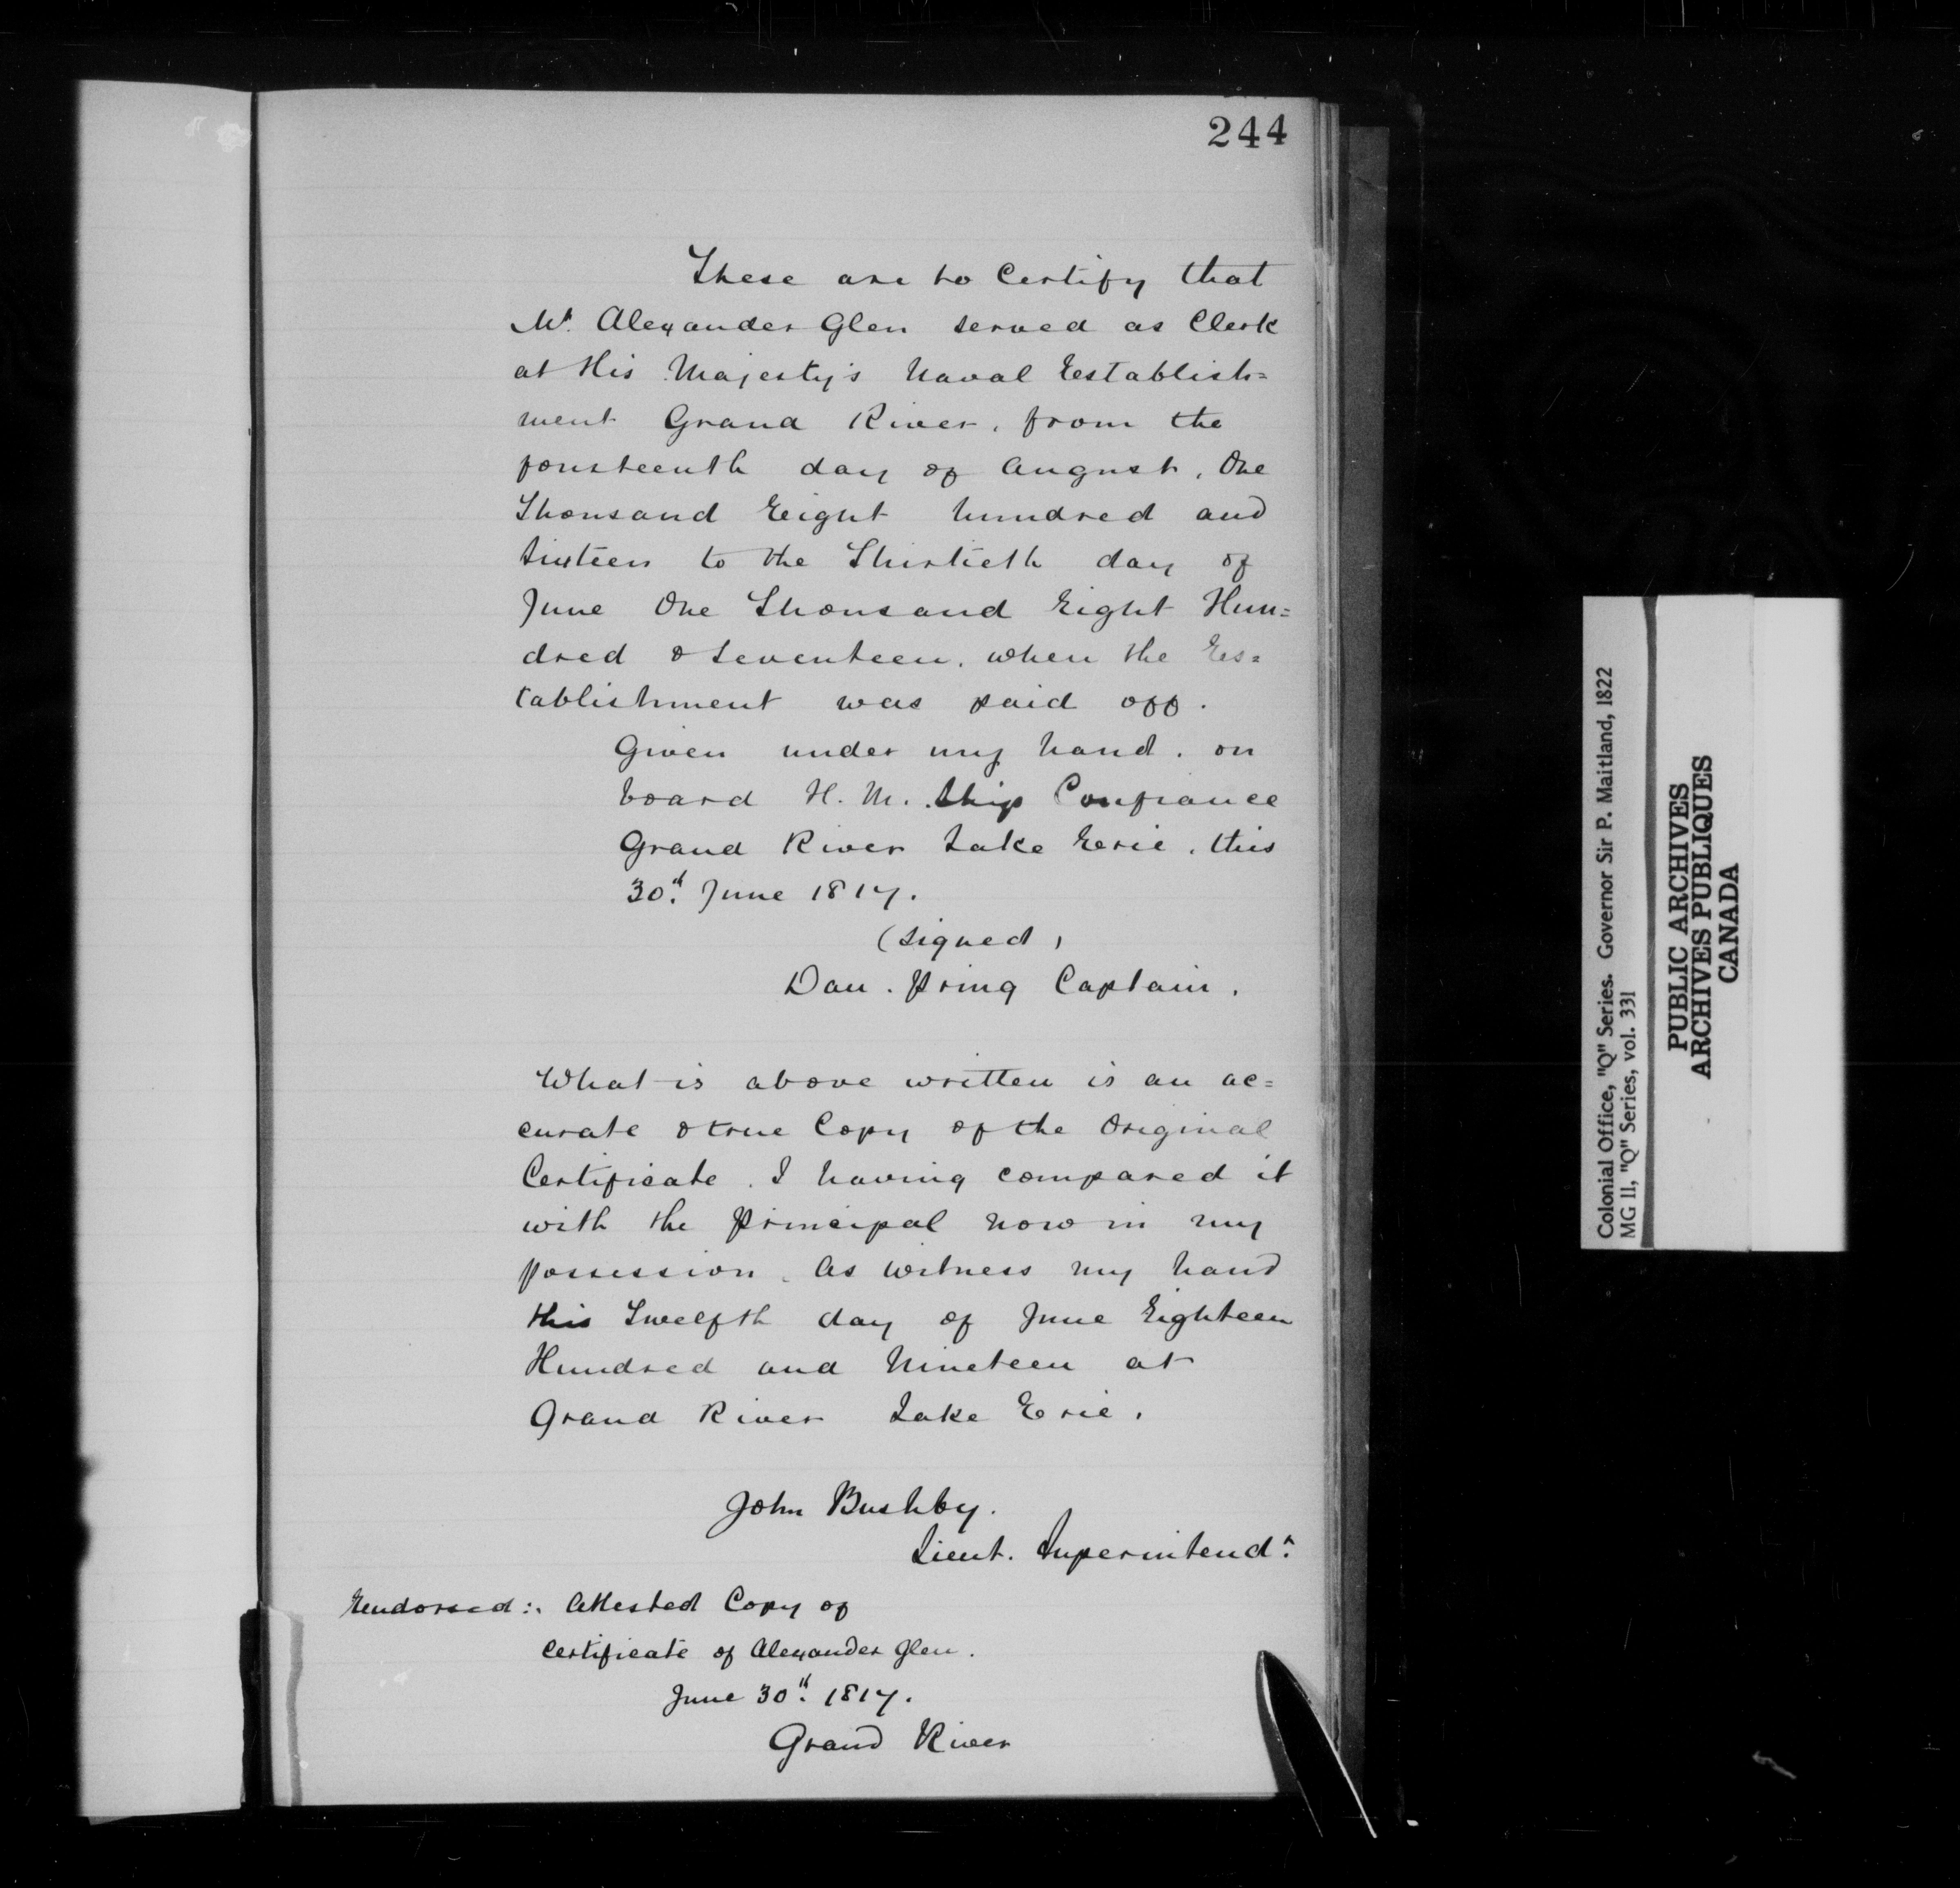 244
These are to Certify that
Mr. Alexander Glen served as Clerk
at His Majesty's Naval Establish=
ment Grand River, from the
fourteenth day of August, One
Thousand Eight hundred and
Sixteen to the Thirtieth day of
June One Thousand Eight Hun=
dred & Seventeen, when the Es=
tablishment was paid off.
Given under my hand, on
board H. M. Ship Confiance
Grand River Lake Erie, this
30th June 1817.
(Signed)
Dan. Pring Captain.
What is above written is an ac=
curate & true Copy of the Original
Certificate. I having compared it
with the Principal now in my
possession. As witness my hand
this Twelfth day of June Eighteen
Hundred and Nineteen at
Grand River Lake Erie.
John Bushby.
Lieut. Superintendt.
Endorsed:. Attested Copy of
Certificate of Alexander Glen.
June 30th. 1817.
Grand River
Colonial Office, "Q" Series. Governor Sir P. Maitland, 1822
MG 11, "Q" Series, vol. 331
PUBLIC ARCHIVES
ARCHIVES PUBLIQUES
CANADA